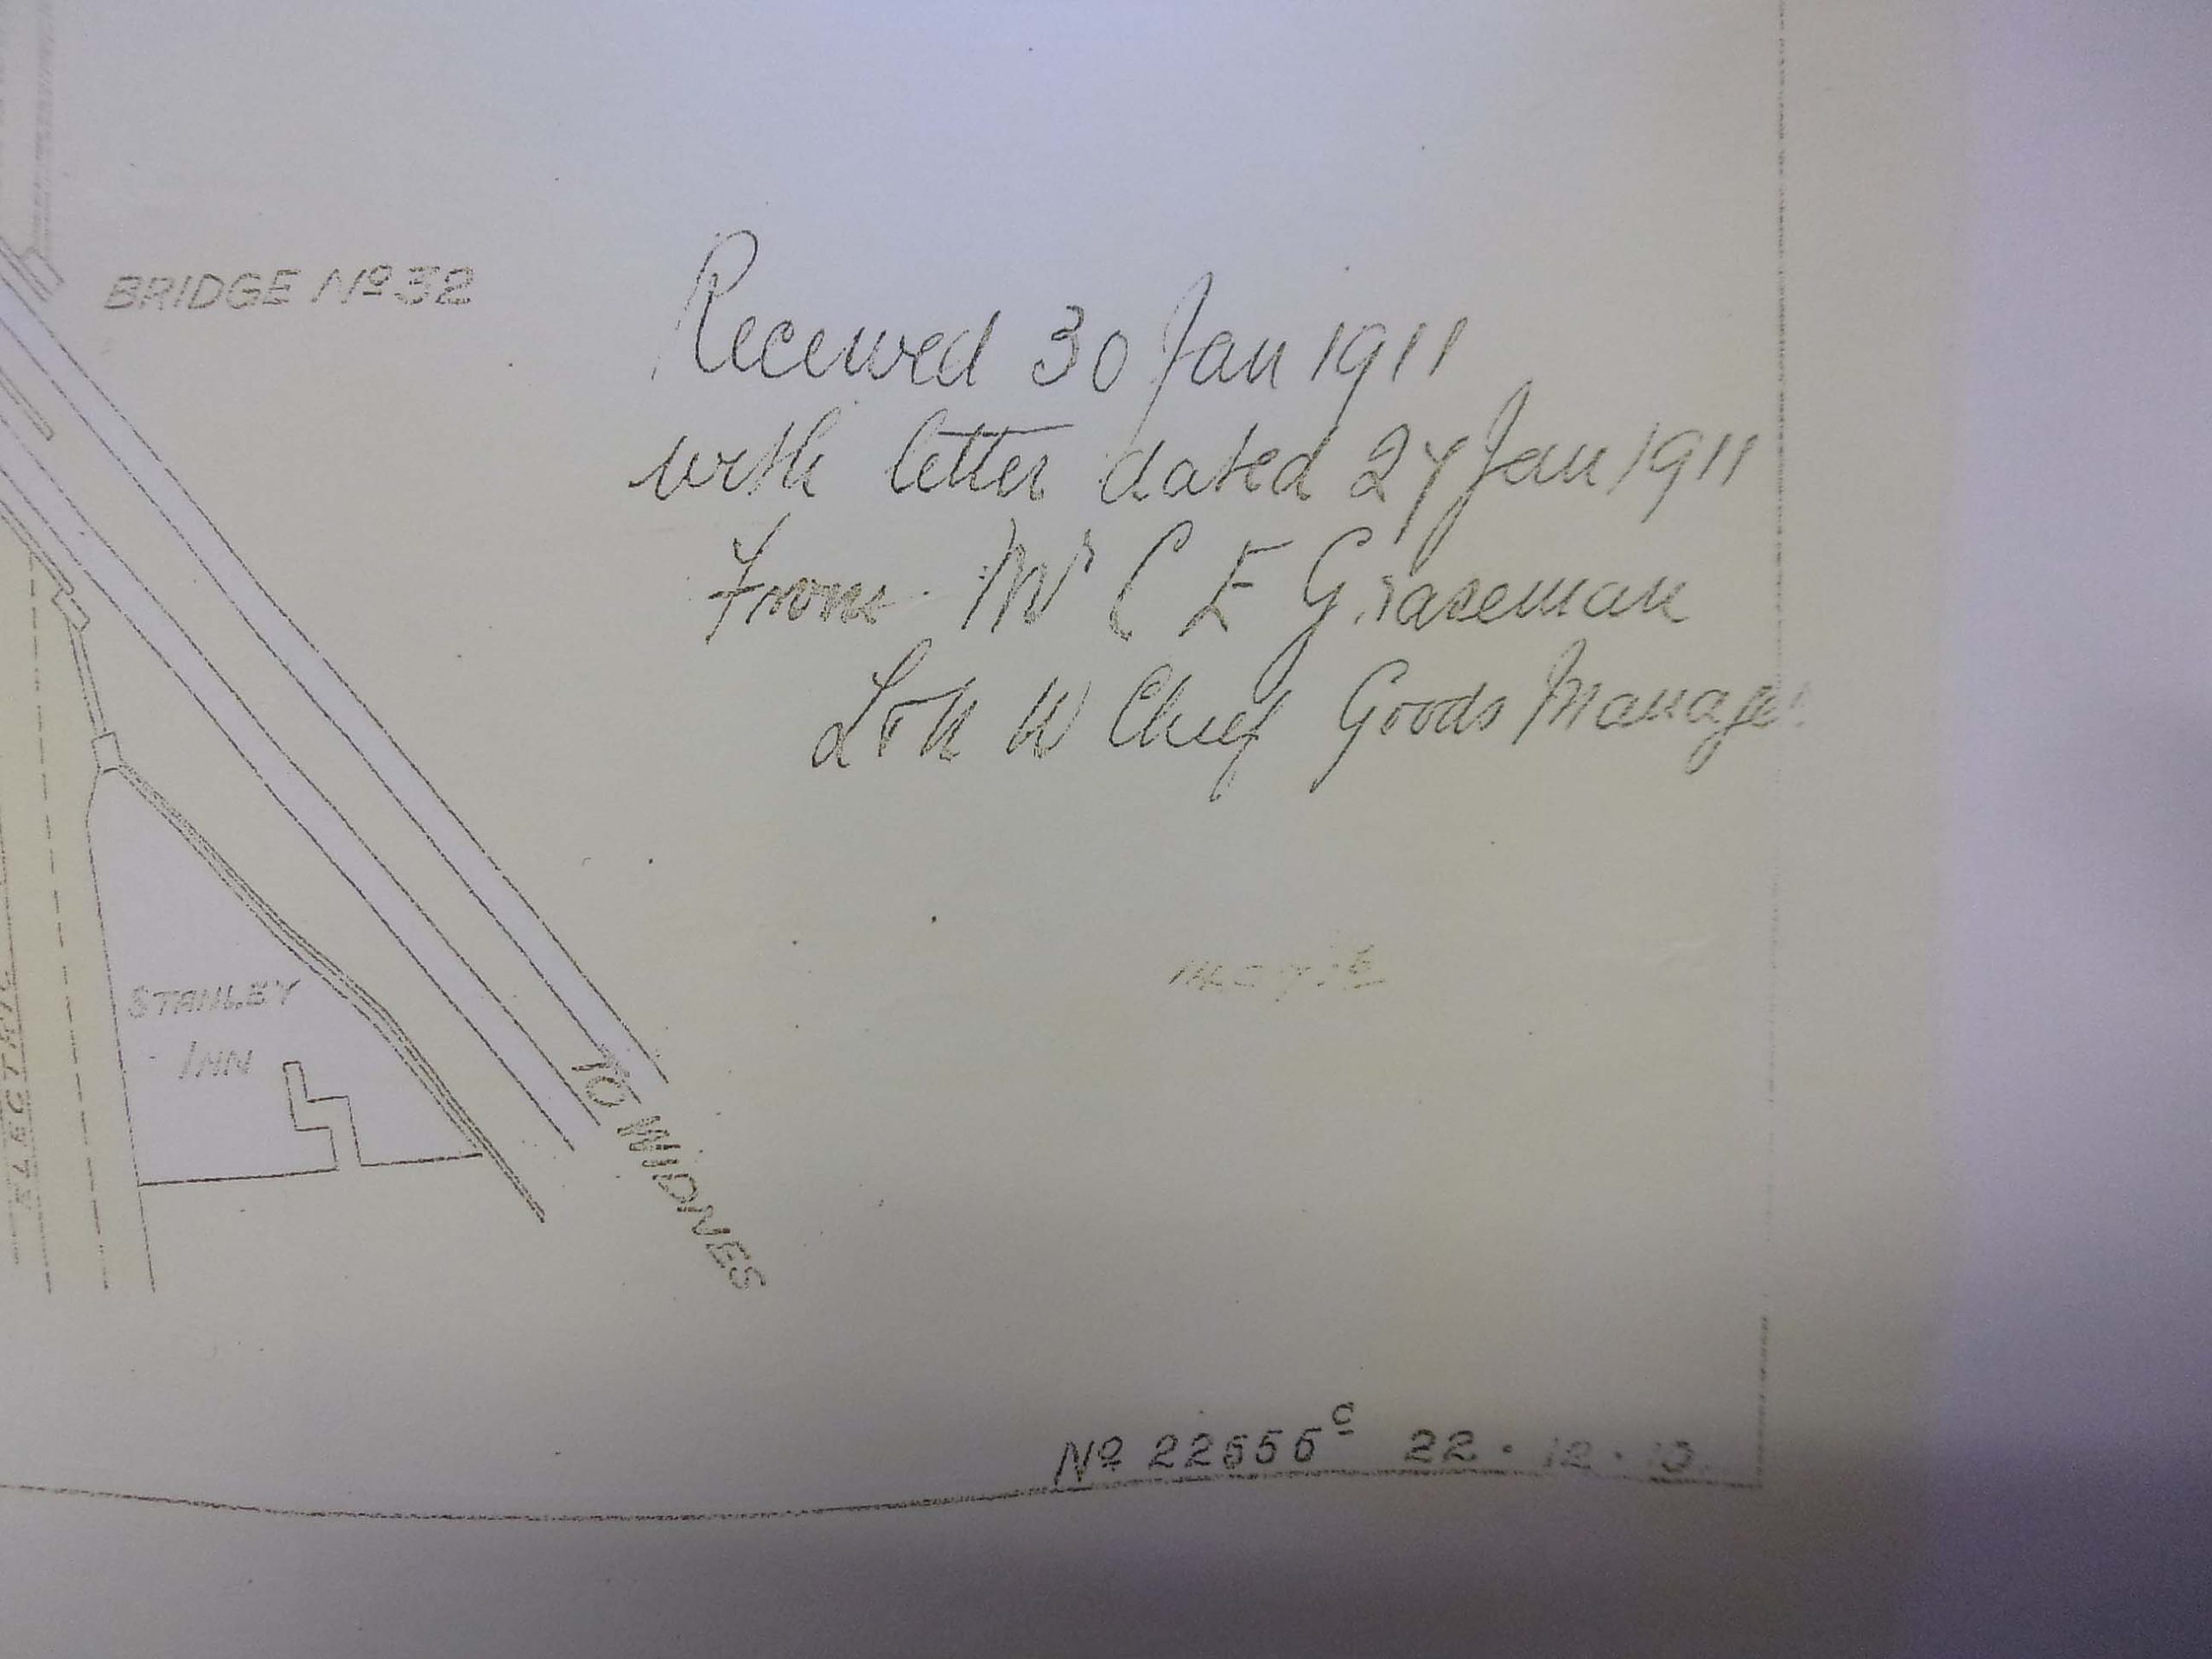 BRIDGE Nº 32
Received 30 Jan 1911
with letter dated 27 Jan 1911
From Mr C E Graseman
L & N W Chief Goods Manager
STANLEY
INN
ELECTRIC
TO WIDNES
Nº 22555ᶜ 22 · 12 · 10